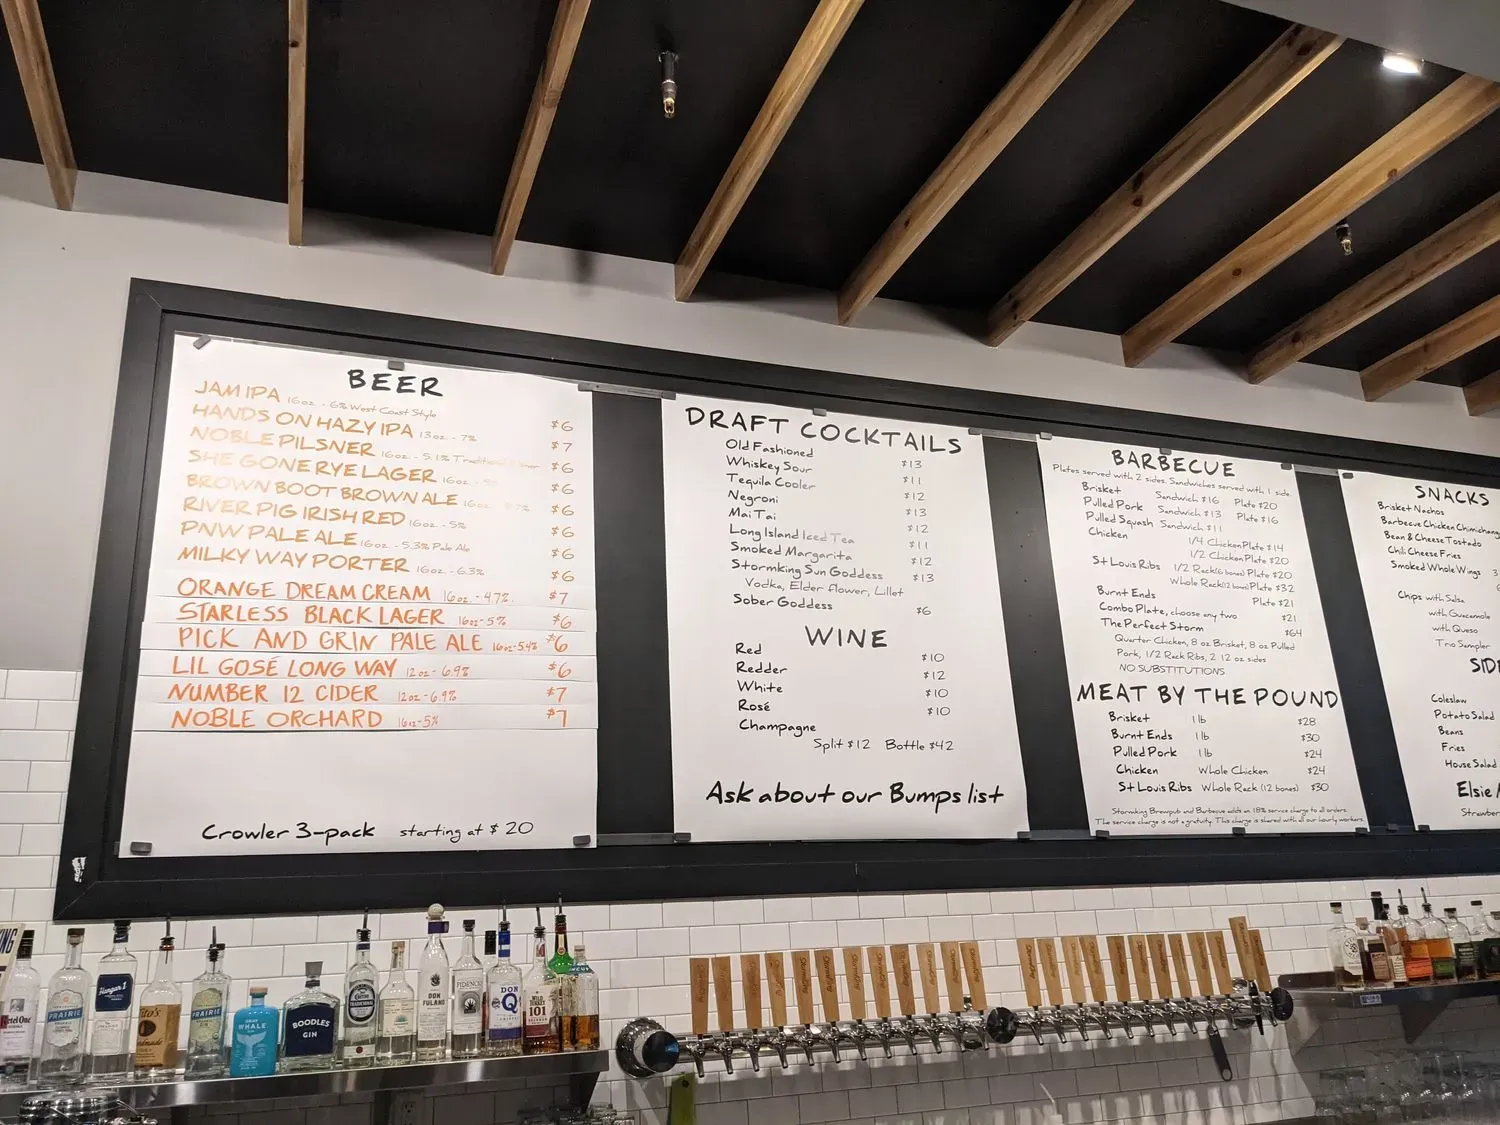 BEER
JAM IPA 16oz. - 6% West Coast Style $6
HANDS ON HAZY IPA 13oz. - 7% $7
NOBLE PILSNER 16oz. - 5.1% Traditional $6
SHE GONE RYE LAGER 16oz. $6
BROWN BOOT BROWN ALE 16oz. $6
RIVER PIG IRISH RED 16oz. - 5% $6
PNW PALE ALE 16oz. - 5.3% Pale Ale $6
MILKY WAY PORTER 16oz. - 6.3% $6
ORANGE DREAM CREAM 16oz. - 4.7%. $7
STARLESS BLACK LAGER 16oz - 5% $6
PICK AND GRIN PALE ALE 16oz - 5.4% $6
LIL GOSÉ LONG WAY 12oz - 6.9% $6
NUMBER 12 CIDER 12oz - 6.9% $7
NOBLE ORCHARD 16oz - 5% $7
Crowler 3-pack starting at $20
DRAFT COCKTAILS
Old Fashioned $13
Whiskey Sour $11
Tequila Cooler $12
Negroni $13
Mai Tai $12
Long Island Iced Tea $11
Smoked Margarita $12
Stormking Sun Goddess $13
Vodka, Elder Flower, Lillet
Sober Goddess $6
WINE
Red $10
Redder $12
White $10
Rosé $10
Champagne
Split $12 Bottle $42
Ask about our Bumps list
BARBECUE
Plates served with 2 sides. Sandwiches served with 1 side.
Brisket Sandwich $16 Plate $20
Pulled Pork Sandwich $13 Plate $16
Pulled Squash Sandwich $11
Chicken 1/4 Chicken Plate $14
1/2 Chicken Plate $20
St Louis Ribs 1/2 Rack (6 bones) Plate $20
Whole Rack (12 bones) Plate $32
Burnt Ends Plate $21
Combo Plate, choose any two $21
The Perfect Storm $64
Quarter Chicken, 8 oz Brisket, 8 oz Pulled
Pork, 1/2 Rack Ribs, 2 12 oz sides
NO SUBSTITUTIONS
MEAT BY THE POUND
Brisket 1 lb $28
Burnt Ends 1 lb $30
Pulled Pork 1 lb $24
Chicken Whole Chicken $24
St Louis Ribs Whole Rack (12 bones) $30
Stormking Brewpub and Barbecue adds an 18% service charge to all orders.
The service charge is not a gratuity. This charge is shared with all our hourly workers.
SNACKS
Brisket Nachos
Barbecue Chicken Chimichang
Bean & Cheese Tostado
Chili Cheese Fries
Smoked Whole Wings 3
Chips with Salsa
with Guacamole
with Queso
Trio Sampler
SID
Coleslaw
Potato Salad
Beans
Fries
House Salad
Elsie
Strawber
Ketel One
PRAIRIE
Hangar 1
Tito's
Handmade
PRAIRIE
GIN
GRAY WHALE
BOODLES
GIN
TRADICIONAL
DON
FULANO
FIDENCIO
DON
Q
WILD TURKEY
101